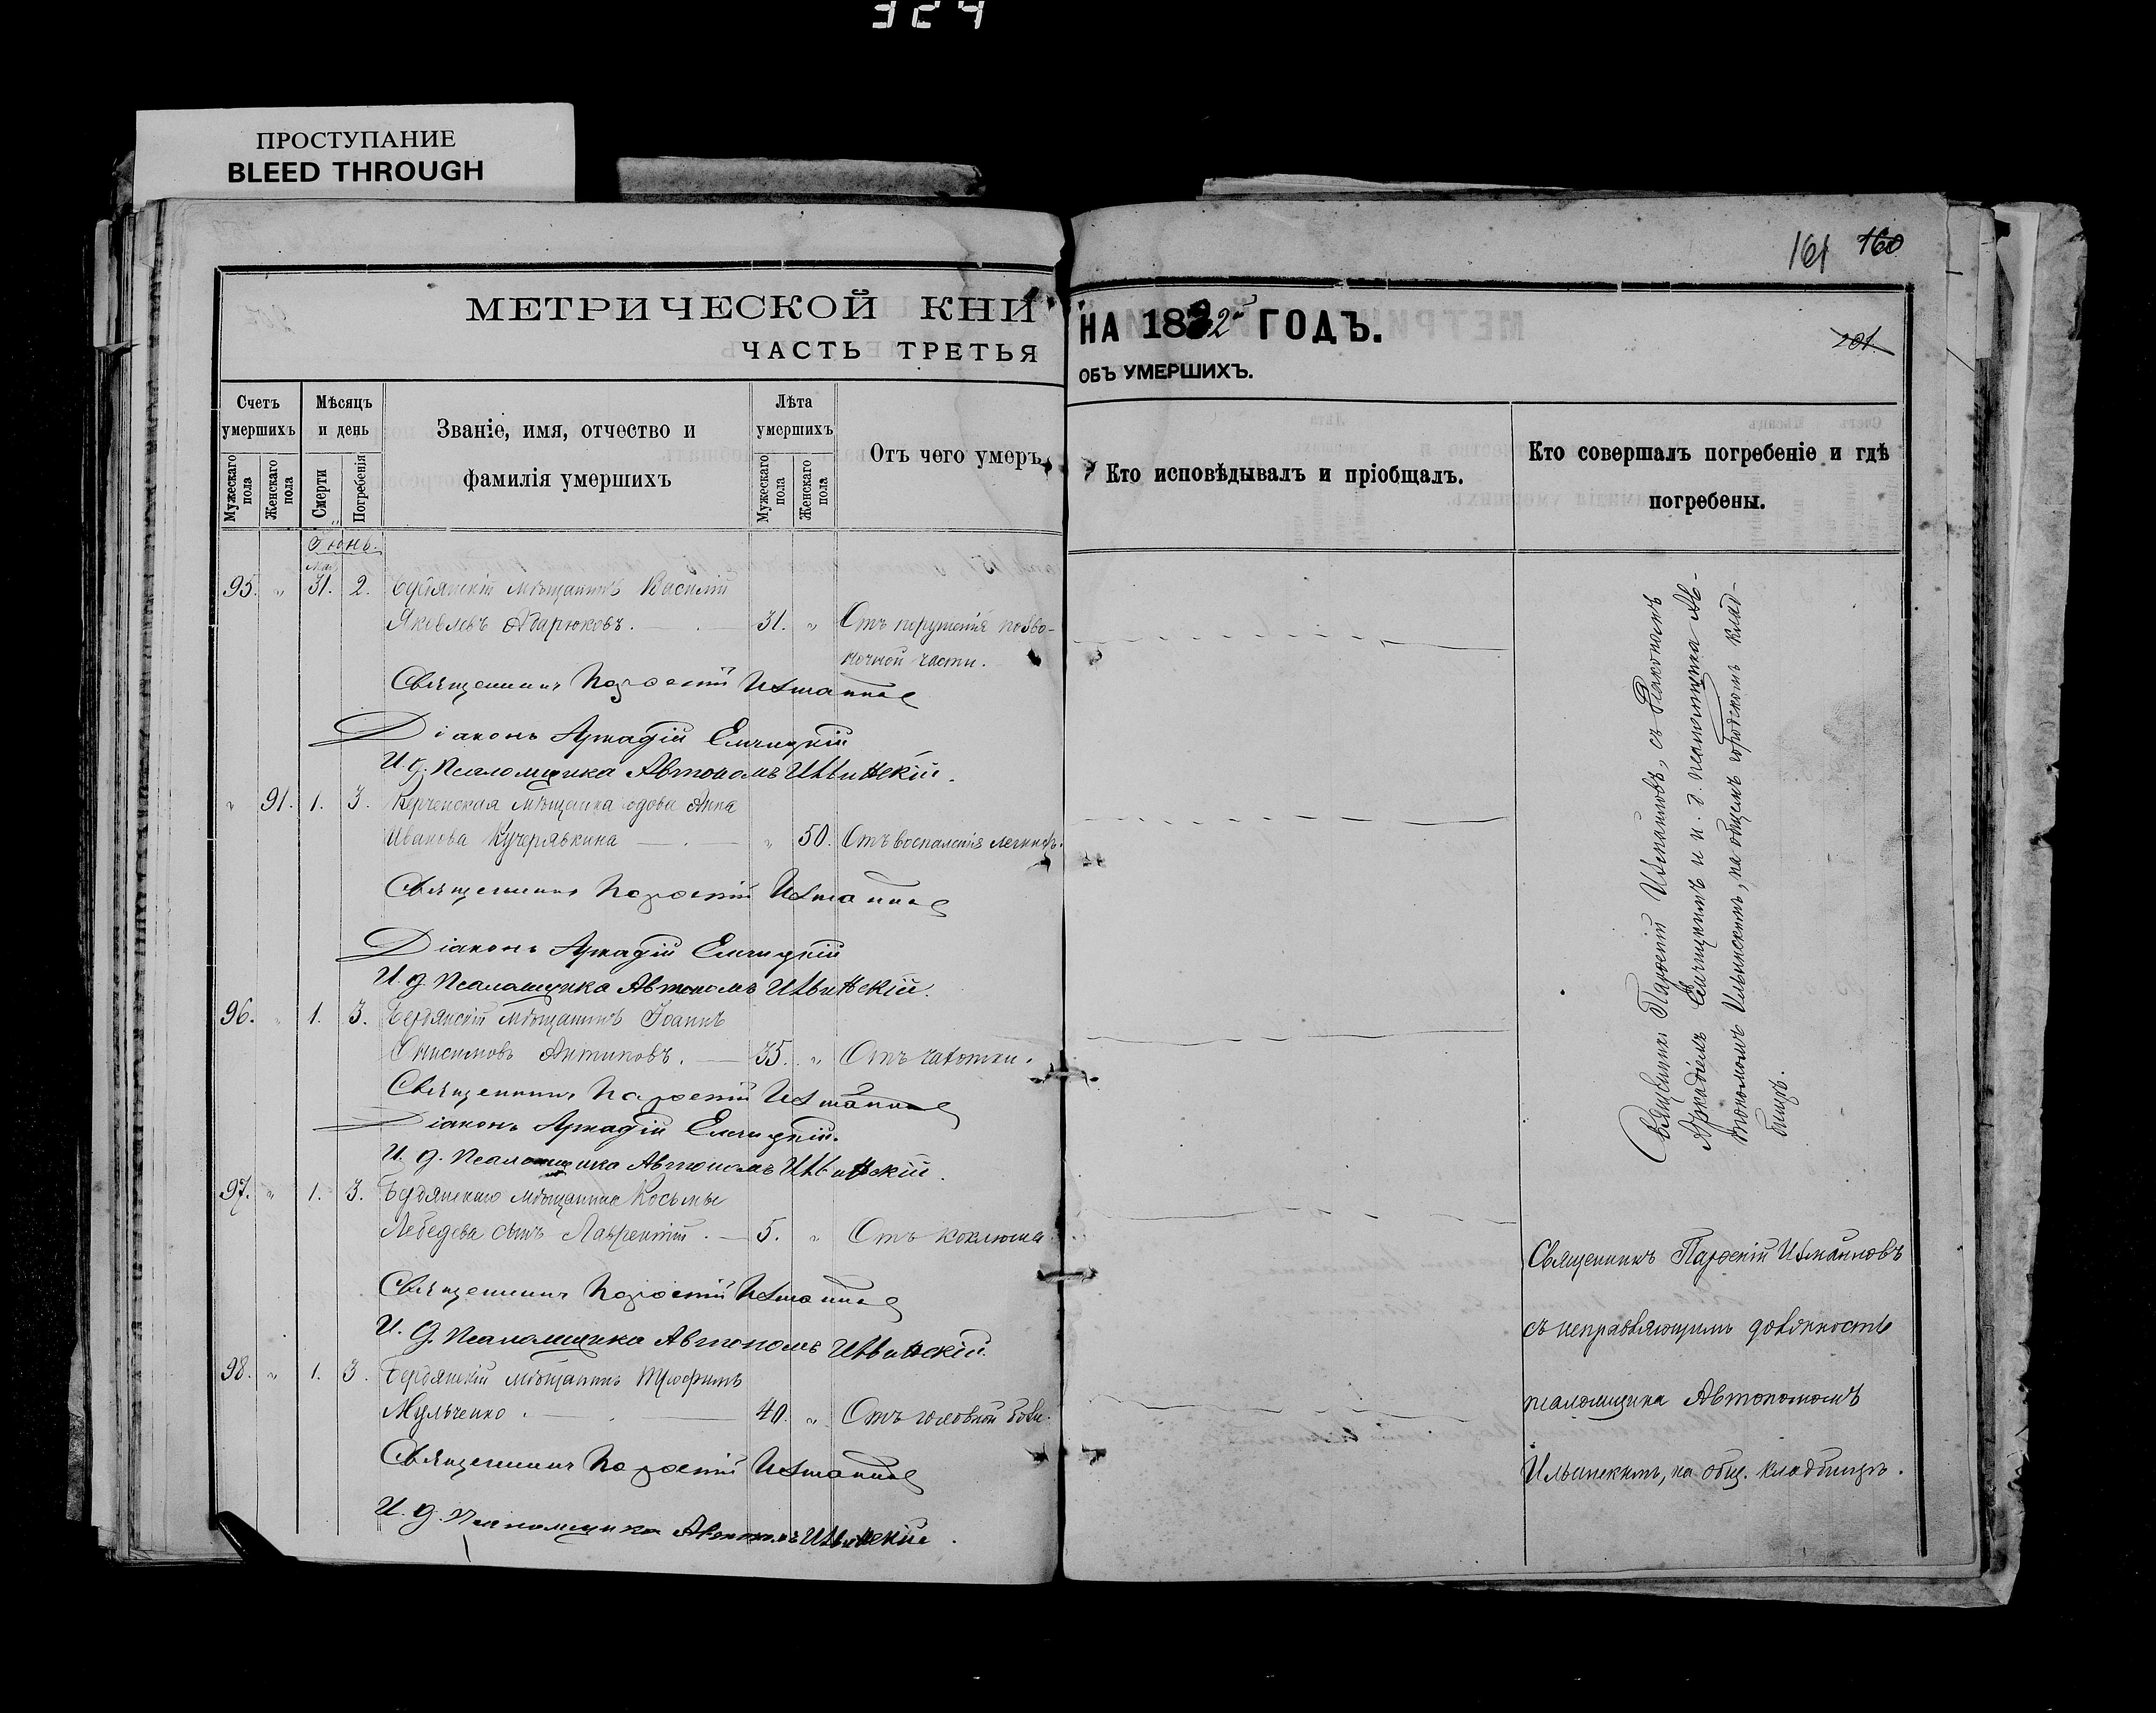 324
ПРОСТУПАНИЕ
BLEED THROUGH
161 160
МЕТРИЧЕСКОЙ КНИ
НА 1882 ГОДЪ.
201.
ЧАСТЬ ТРЕТЬЯ
ОБЪ УМЕРШИХЪ.
Счетъ умершихъ
Мужескаго пола
Женскаго пола
Мѣсяцъ и день
Смерти
Погребенія
Званіе, имя, отчество и
фамилія умершихъ
Лѣта умершихъ
Мужескаго пола
Женскаго пола
Отъ чего умеръ
Кто исповѣдывалъ и пріобщалъ.
Кто совершалъ погребеніе и гдѣ
погребены.
Іюнь.
Мая
95. " 31. 2. Бердянскій мѣщанинъ Василій
Яковлевъ 31. " Отъ позво-
ночной части.
Священникъ Парѳеній Измаиловъ
Діаконъ Аркадій Елчицкій
И. д. Псаломщика Автономъ Ильинскій.
" 91. 1. 3. Керченская мѣщанка вдова Анна
Иванова Кучерявкина " 50. Отъ воспаленія легкихъ.
Священникъ Парѳеній Измаиловъ
Діаконъ Аркадій Елчицкій
И. д. Псаломщика Автономъ Ильинскій.
96. " 1. 3. Бердянскій мѣщанинъ Іоаннъ
Онисимовъ Антиповъ. 35. " Отъ чахотки.
Священникъ Парѳеній Измаиловъ
Діаконъ Аркадій Елчицкій.
И. д. Псаломщика Автономъ Ильинскій.
97. " 1. 3. Бердянскаго мѣщанина Косьмы
Лебедева сынъ Лаврентій. 5. " Отъ коклюша
Священникъ Парѳеній Измаиловъ
И. д. Псаломщика Автономъ Ильинскій.
98. " 1. 3. Бердянскій мѣщанинъ Трофимъ
Мульченко. 40. " Отъ головной боли.
Священникъ Парѳеній Измаиловъ
И. д. Псаломщика Автономъ Ильинскій.
Священникъ Парѳеній Измаиловъ, съ Діакономъ
Аркадіемъ Елчицкимъ и и. д. псаломщика Ав-
тономомъ Ильинскимъ, на общемъ городскомъ клад-
бищѣ.
Священникъ Парѳеній Измаиловъ
съ исправляющимъ должность
псаломщика Автономомъ
Ильинскимъ, на общ. кладбищѣ.